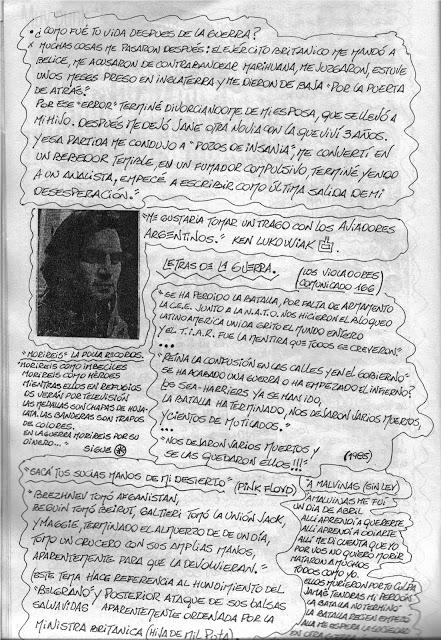 • ¿CÓMO FUE TÚ VIDA DESPUES DE LA GUERRA?
x MUCHAS COSAS ME PASARON DESPUÉS: EL EJÉRCITO BRITANICO ME MANDÓ A
BELICE, ME ACUSARON DE CONTRABANDEAR MARIHUANA, ME JUZGARON, ESTUVE
UNOS MESES PRESO EN INGLATERRA Y ME DIERON DE BAJA "POR LA PUERTA
DE ATRÁS?
POR ESE "ERROR" TERMINÉ DIVORCIANDOME DE MI ESPOSA, QUE SE LLEVÓ A
MI HIJO. DESPUÉS ME DEJÓ JANE OTRA NOVIA CON LA QUE VIVÍ 3 AÑOS.
Y ESA PARTIDA ME CONDUJO A "POZOS DE INSANIA", ME CONVERTÍ EN
UN BEBEDOR TEMIBLE, EN UN FUMADOR COMPULSIVO, TERMINÉ YENDO
A UN ANALISTA, EMPECÉ A ESCRIBIR COMO ÚLTIMA SALIDA DE MI
DESESPERACIÓN."
"ME GUSTARIA TOMAR UN TRAGO CON LOS AVIADORES
ARGENTINOS." KEN LUKOWIAK
LETRAS DE LA GUERRA.
(LOS VIOLADORES)
COMUNICADO 166
"SE HA PERDIDO LA BATALLA, POR FALTA DE ARMAMENTO
LA C.E.E. JUNTO A LA N.A.T.O. NOS HICIERON EL BLOQUEO
LATINOAMERICA UNIDA GRITÓ EL MUNDO ENTERO
Y EL T.I.A.R. FUE LA MENTIRA QUE TODOS SE CREYERON"
...
"REINA LA CONFUSIÓN EN LAS CALLES Y EN EL GOBIERNO
SE HA ACABADO UNA GUERRA O HA EMPEZADO EL INFIERNO?
LOS SEA-HARRIERS YA SE HAN IDO,
LA BATALLA HA TERMINADO, NOS DEJARON VARIOS MUERTOS,
Y CIENTOS DE MUTILADOS."
...
"NOS DEJARON VARIOS MUERTOS Y
SE LAS QUEDARON ELLOS!!!"
(1985)
"MORIREIS" LA POLLA RECORDS.
"MORIREIS COMO IMBECILES
MORIREIS COMO HÉROES
MIENTRAS ELLOS EN REFUGIOS
OS VERÁN POR TELEVISIÓN
LAS MEDALLAS SON CHAPAS DE HOJA-
LATA. LAS BANDERAS SON TRAPOS
DE COLORES.
EN LA GUERRA MORIREIS POR SU
DINERO..."
SIGUE
"SACÁ TUS SUCIAS MANOS DE MI DESIERTO" (PINK FLOYD)
"BREZHNEV TOMÓ AFGANISTAN,
BEGUIN TOMÓ BEIRUT, GALTIERI TOMÓ LA UNIÓN JACK,
Y MAGGIE, TERMINADO EL ALMUERZO DE UN DÍA,
TOMÓ UN CRUCERO CON SUS AMPLIAS MANOS,
APARENTEMENTE PARA QUE LA DEVOLVIERAN."
ESTE TEMA HACE REFERENCIA AL HUNDIMIENTO DEL
"BELGRANO" Y POSTERIOR ATAQUE DE SUS BALSAS
SALVAVIDAS APARENTEMENTE ORDENADA POR LA
MINISTRA BRITANICA (HIJA DE MIL PUTA)
"A MALVINAS (SIN LEY)
A MALVINAS ME FUI
UN DIA DE ABRIL
ALLI APRENDÍ A QUERERTE
ALLI APRENDÍ A ODIARTE
ALLI ME DI CUENTA QUE YO
POR VOS NO QUIERO MORIR
MATARON A MUCHOS
TODOS COMO YO.
ELLOS MURIERON POR TU CULPA
JAMÁS TENDRAS MI PERDÓN
LA BATALLA NO TERMINO
LA BATALLA RECIEN EMPEZÓ